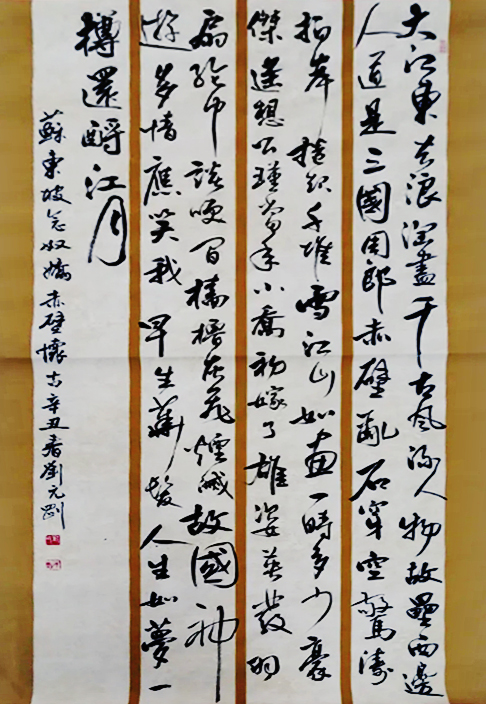 大江東去浪淘盡千古風流人物故壘西邊
人道是三國周郎赤壁亂石穿空驚濤
拍岸捲起千堆雪江山如畫一時多少豪
傑遙想公瑾當年小喬初嫁了雄姿英發羽
扇綸巾談咲間檣櫓灰飛煙滅故國神
遊多情應笑我早生華髮人生如夢一
樽還酹江月
蘇東坡念奴嬌赤壁懷古辛丑春劉元剛